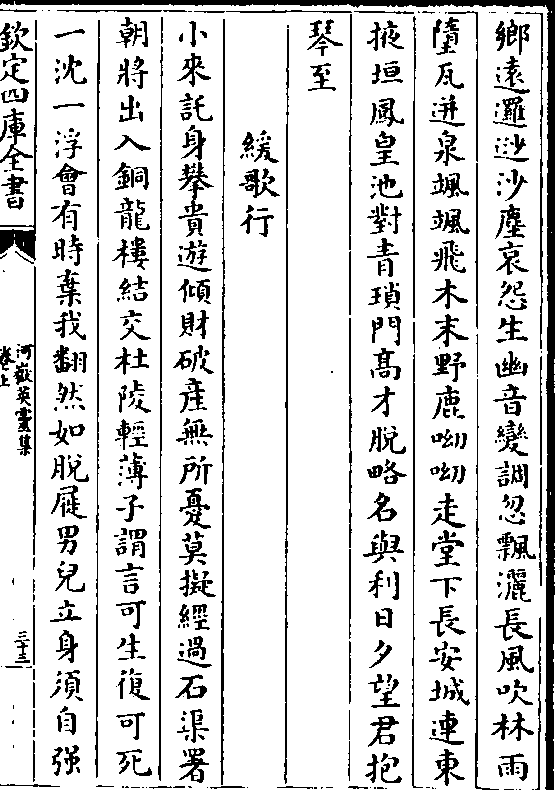 鄉遠邏逤沙塵哀怨生幽音變調忽飄灑長風吹林雨
墮瓦迸泉颯颯飛木末野鹿呦呦走堂下長安城連東
掖垣鳳皇池對青瑣門髙才脱略名與利日夕望君抱
琴至
緩歌行
小來託身攀貴遊傾財破產無所憂莫擬經過石渠署
朝將出入銅龍樓結交杜陵輕薄子謂言可生復可死
一沈一浮會有時棄我翻然如脫屣男兒立身須自强
欽定四庫全書
河嶽英靈集
卷上
三十三